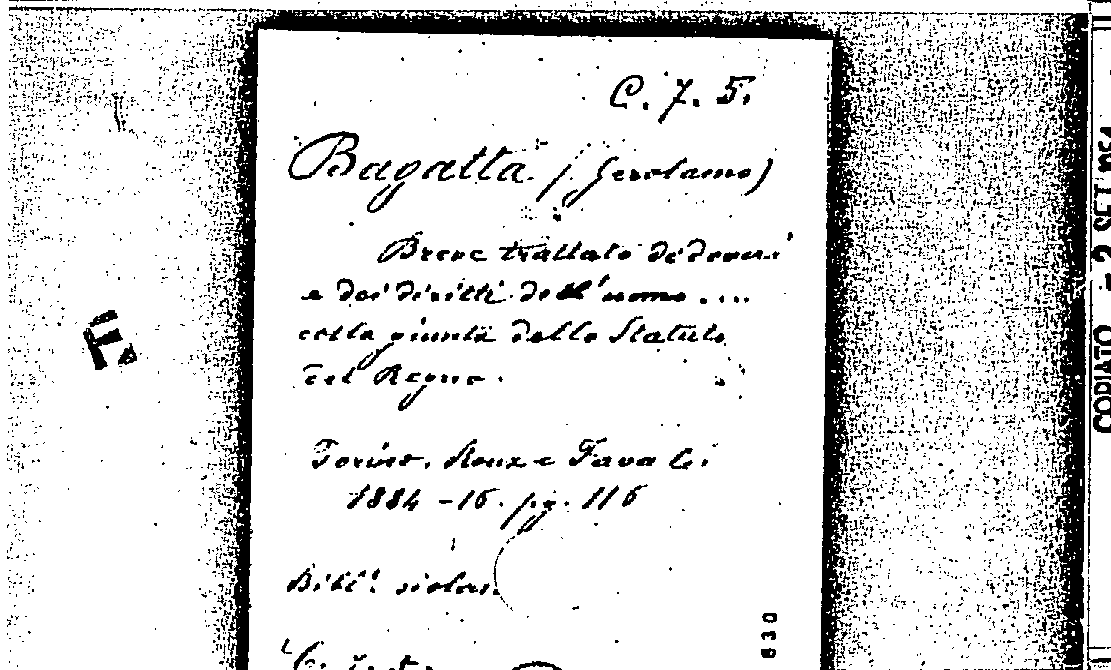 C. 7. 5.
Bagatta (Gerolamo)
Breve trattato dei doveri
e dei diritti dell'uomo ....
colla giunta dello Statuto
del Regno.
Torino. Roux e Favale.
1884 - 16. pg. 116
Bibl. 
630
COPIATO - 2 SET.